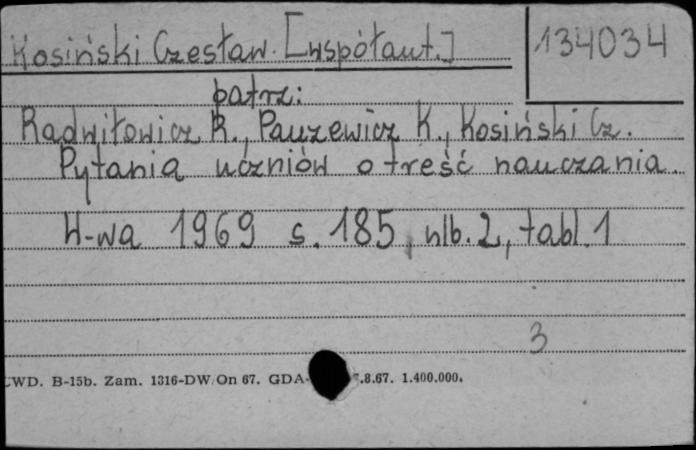 Kosiński Czesław. [współaut.]
134034
patrz:
Radwiłowicz R., Pauzewicz K., Kosiński Cz.
Pytania uczniów o treść nauczania.
W-wa 1969 s. 185, nlb. 2, tabl. 1
3
LWD. B-15b. Zam. 1316-DW/On 67. GDA- .8.67. 1.400.000.